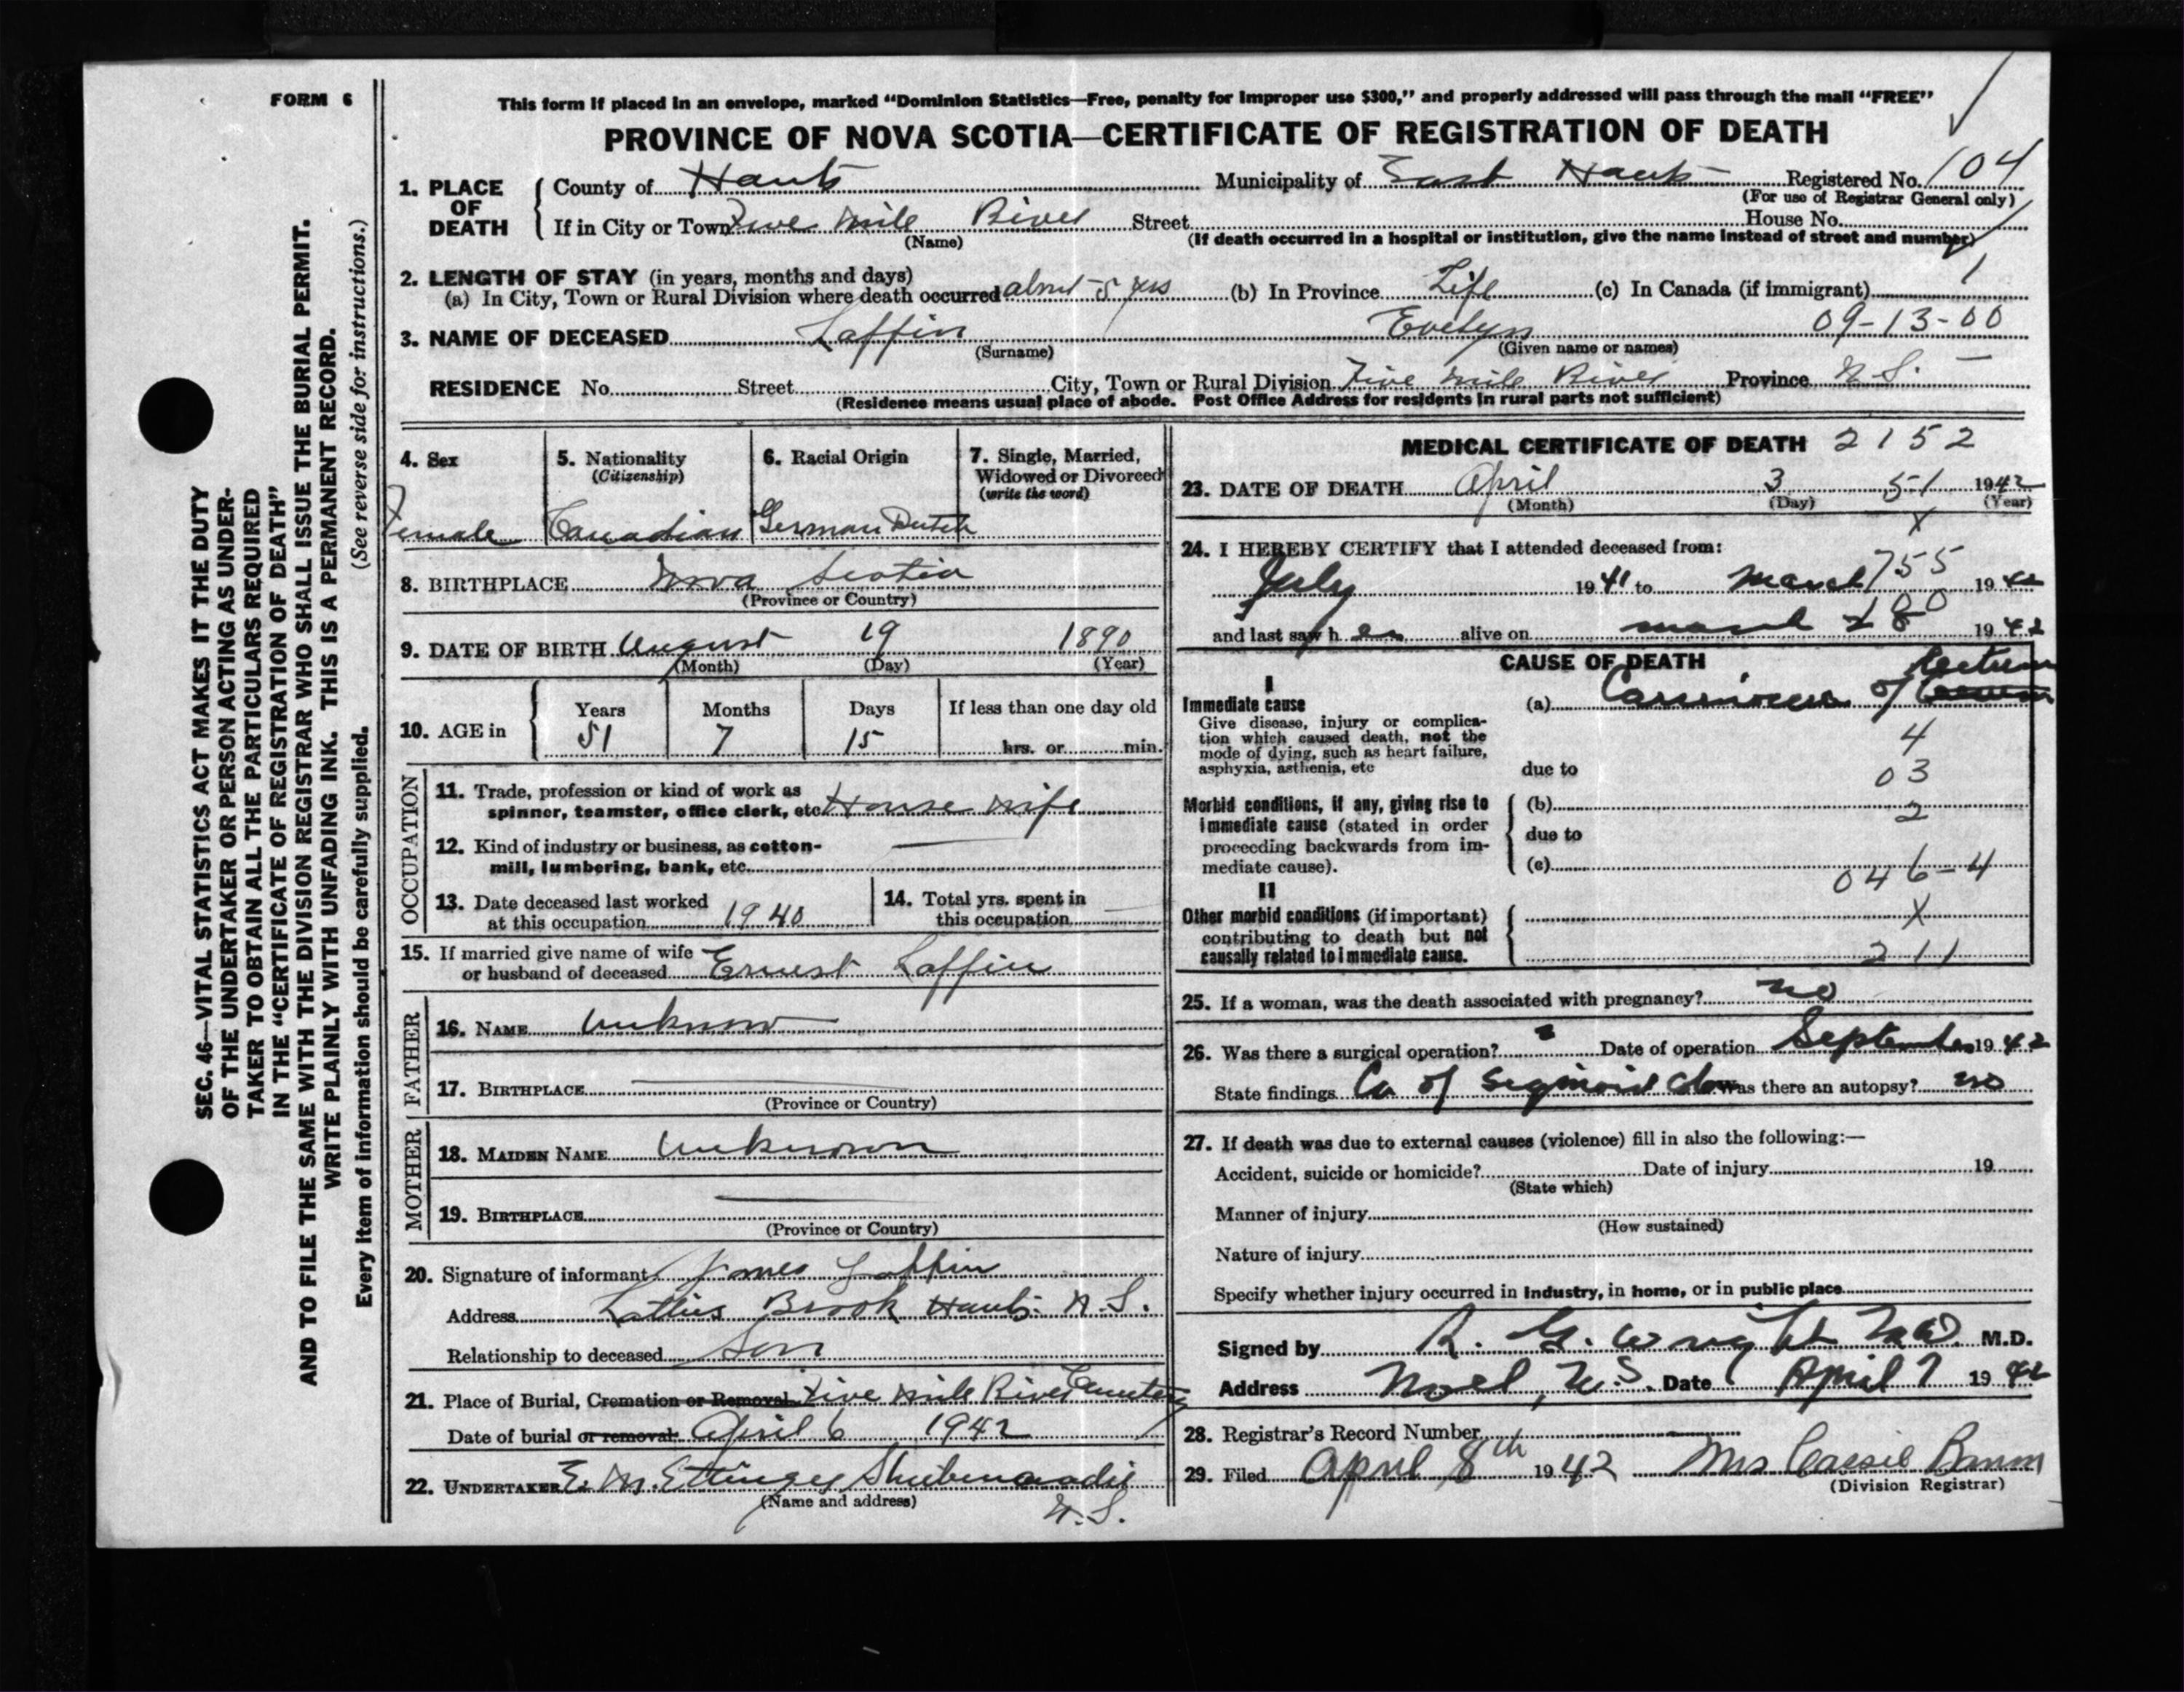 FORM 6
This form if placed in an envelope, marked "Dominion Statistics—Free, penalty for improper use $300," and properly addressed will pass through the mail "FREE"
PROVINCE OF NOVA SCOTIA—CERTIFICATE OF REGISTRATION OF DEATH
1. PLACE OF DEATH County of Hants Municipality of East Hants Registered No. 104
(For use of Registrar General only)
If in City or Town Five Mile River Street House No.
(Name) (If death occurred in a hospital or institution, give the name instead of street and number)
2. LENGTH OF STAY (in years, months and days) 1
(a) In City, Town or Rural Division where death occurred about 5 yrs (b) In Province Life (c) In Canada (if immigrant)
3. NAME OF DECEASED Laffin Evelyn 09-13-00
(Surname) (Given name or names)
RESIDENCE No. Street City, Town or Rural Division Five Mile River Province N.S.
(Residence means usual place of abode. Post Office Address for residents in rural parts not sufficient)
4. Sex 5. Nationality 6. Racial Origin 7. Single, Married,
(Citizenship) Widowed or Divorced
(write the word)
Female Canadian German Dutch
8. BIRTHPLACE Nova Scotia
(Province or Country)
9. DATE OF BIRTH August 19 1890
(Month) (Day) (Year)
Years Months Days If less than one day old
10. AGE in 51 7 15 hrs. or min.
OCCUPATION
11. Trade, profession or kind of work as
spinner, teamster, office clerk, etc. House wife
12. Kind of industry or business, as cotton-
mill, lumbering, bank, etc. —
13. Date deceased last worked 14. Total yrs. spent in
at this occupation 1940 this occupation —
15. If married give name of wife
or husband of deceased Ernest Laffin
FATHER
16. NAME Unknow
17. BIRTHPLACE —
(Province or Country)
MOTHER
18. MAIDEN NAME Unknown
19. BIRTHPLACE —
(Province or Country)
20. Signature of informant James Laffin
Address Brook Hants N.S.
Relationship to deceased Son
21. Place of Burial, Cremation or Removal Five Mile River Cemetery
Date of burial or removal April 6 1942
22. UNDERTAKER E. M. Ettinger Shubenacadie
(Name and address) N.S.
MEDICAL CERTIFICATE OF DEATH 2152
23. DATE OF DEATH April 3 51 1942
(Month) (Day) (Year)
X
24. I HEREBY CERTIFY that I attended deceased from:
July 1941 to March 755 1942
and last saw her alive on March 80 1942
CAUSE OF DEATH
I
Rectum
Immediate cause (a) Carcinoma of
Give disease, injury or complica-
tion which caused death, not the
mode of dying, such as heart failure,
asphyxia, asthenia, etc
4
due to 03
Morbid conditions, if any, giving rise to (b) 2
immediate cause (stated in order due to
proceeding backwards from im-
mediate cause). (c) 046-4
II
Other morbid conditions (if important) X
contributing to death but not
causally related to immediate cause. 211
25. If a woman, was the death associated with pregnancy? no
26. Was there a surgical operation? Date of operation September 1942
State findings Ca of Sigmoid Colon Was there an autopsy? no
27. If death was due to external causes (violence) fill in also the following:—
Accident, suicide or homicide? Date of injury 19
(State which)
Manner of injury
(How sustained)
Nature of injury
Specify whether injury occurred in industry, in home, or in public place
Signed by R. G. Wright M.D. M.D.
Address Noel, N.S. Date April 7 1942
28. Registrar's Record Number
29. Filed April 8th 1942 Mrs Cassie
(Division Registrar)
SEC. 46—VITAL STATISTICS ACT MAKES IT THE DUTY
OF THE UNDERTAKER OR PERSON ACTING AS UNDER-
TAKER TO OBTAIN ALL THE PARTICULARS REQUIRED
IN THE "CERTIFICATE OF REGISTRATION OF DEATH"
AND TO FILE THE SAME WITH THE DIVISION REGISTRAR WHO SHALL ISSUE THE BURIAL PERMIT.
WRITE PLAINLY WITH UNFADING INK. THIS IS A PERMANENT RECORD.
Every item of information should be carefully supplied. (See reverse side for instructions.)